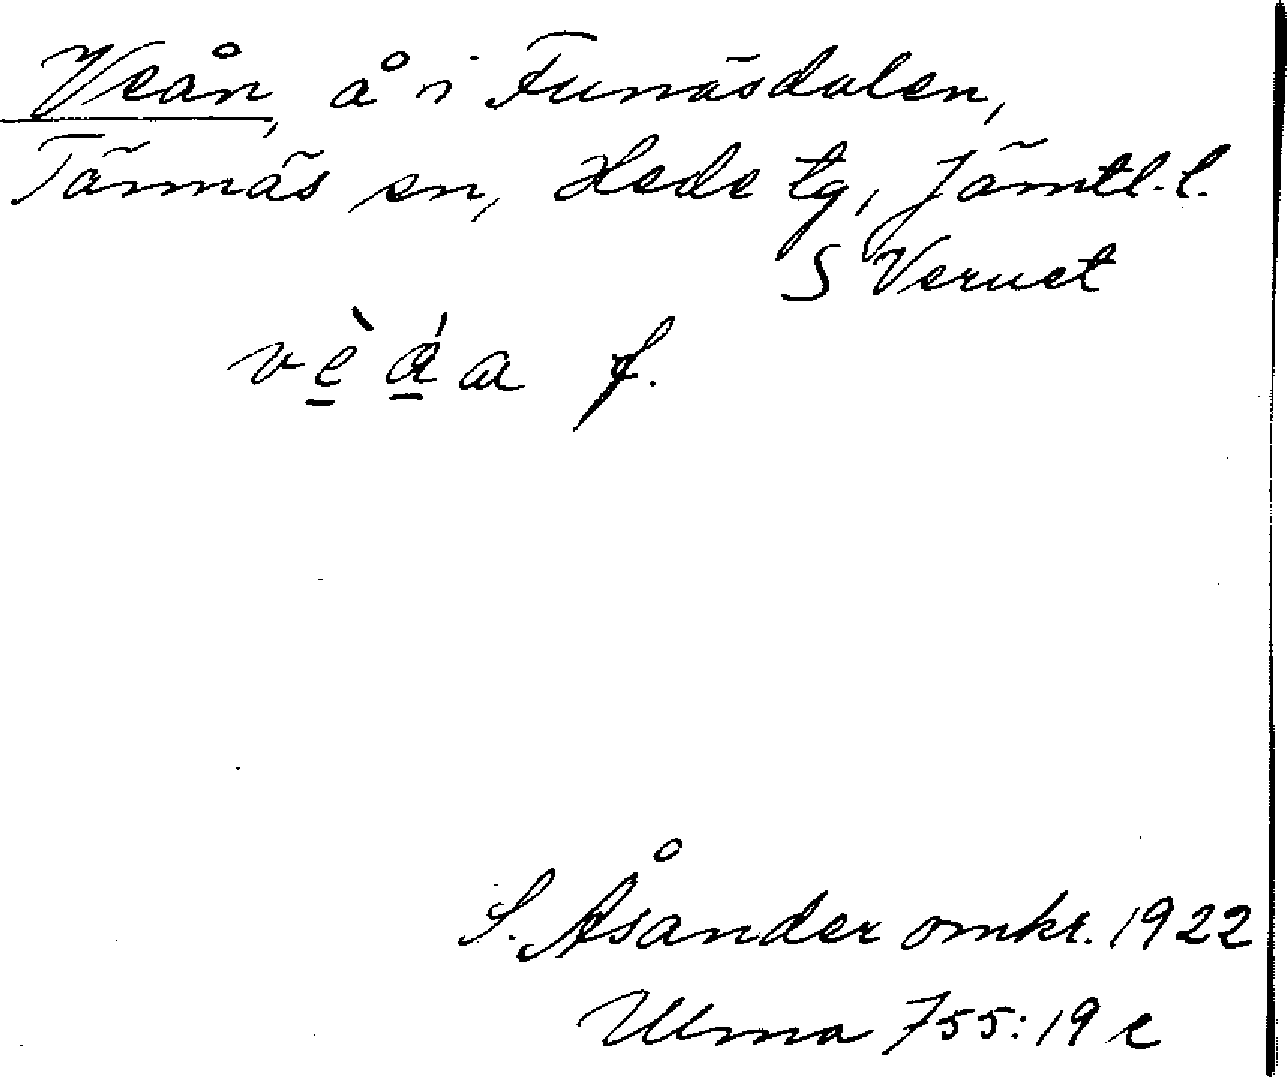 Veån, å i Funäsdalen,
Tännäs sn, Hede tg, Jämtl. l.
S Veruet
vè̱ á̱a f.
S. Åsander omkr. 1922
Ulma 755:19 c